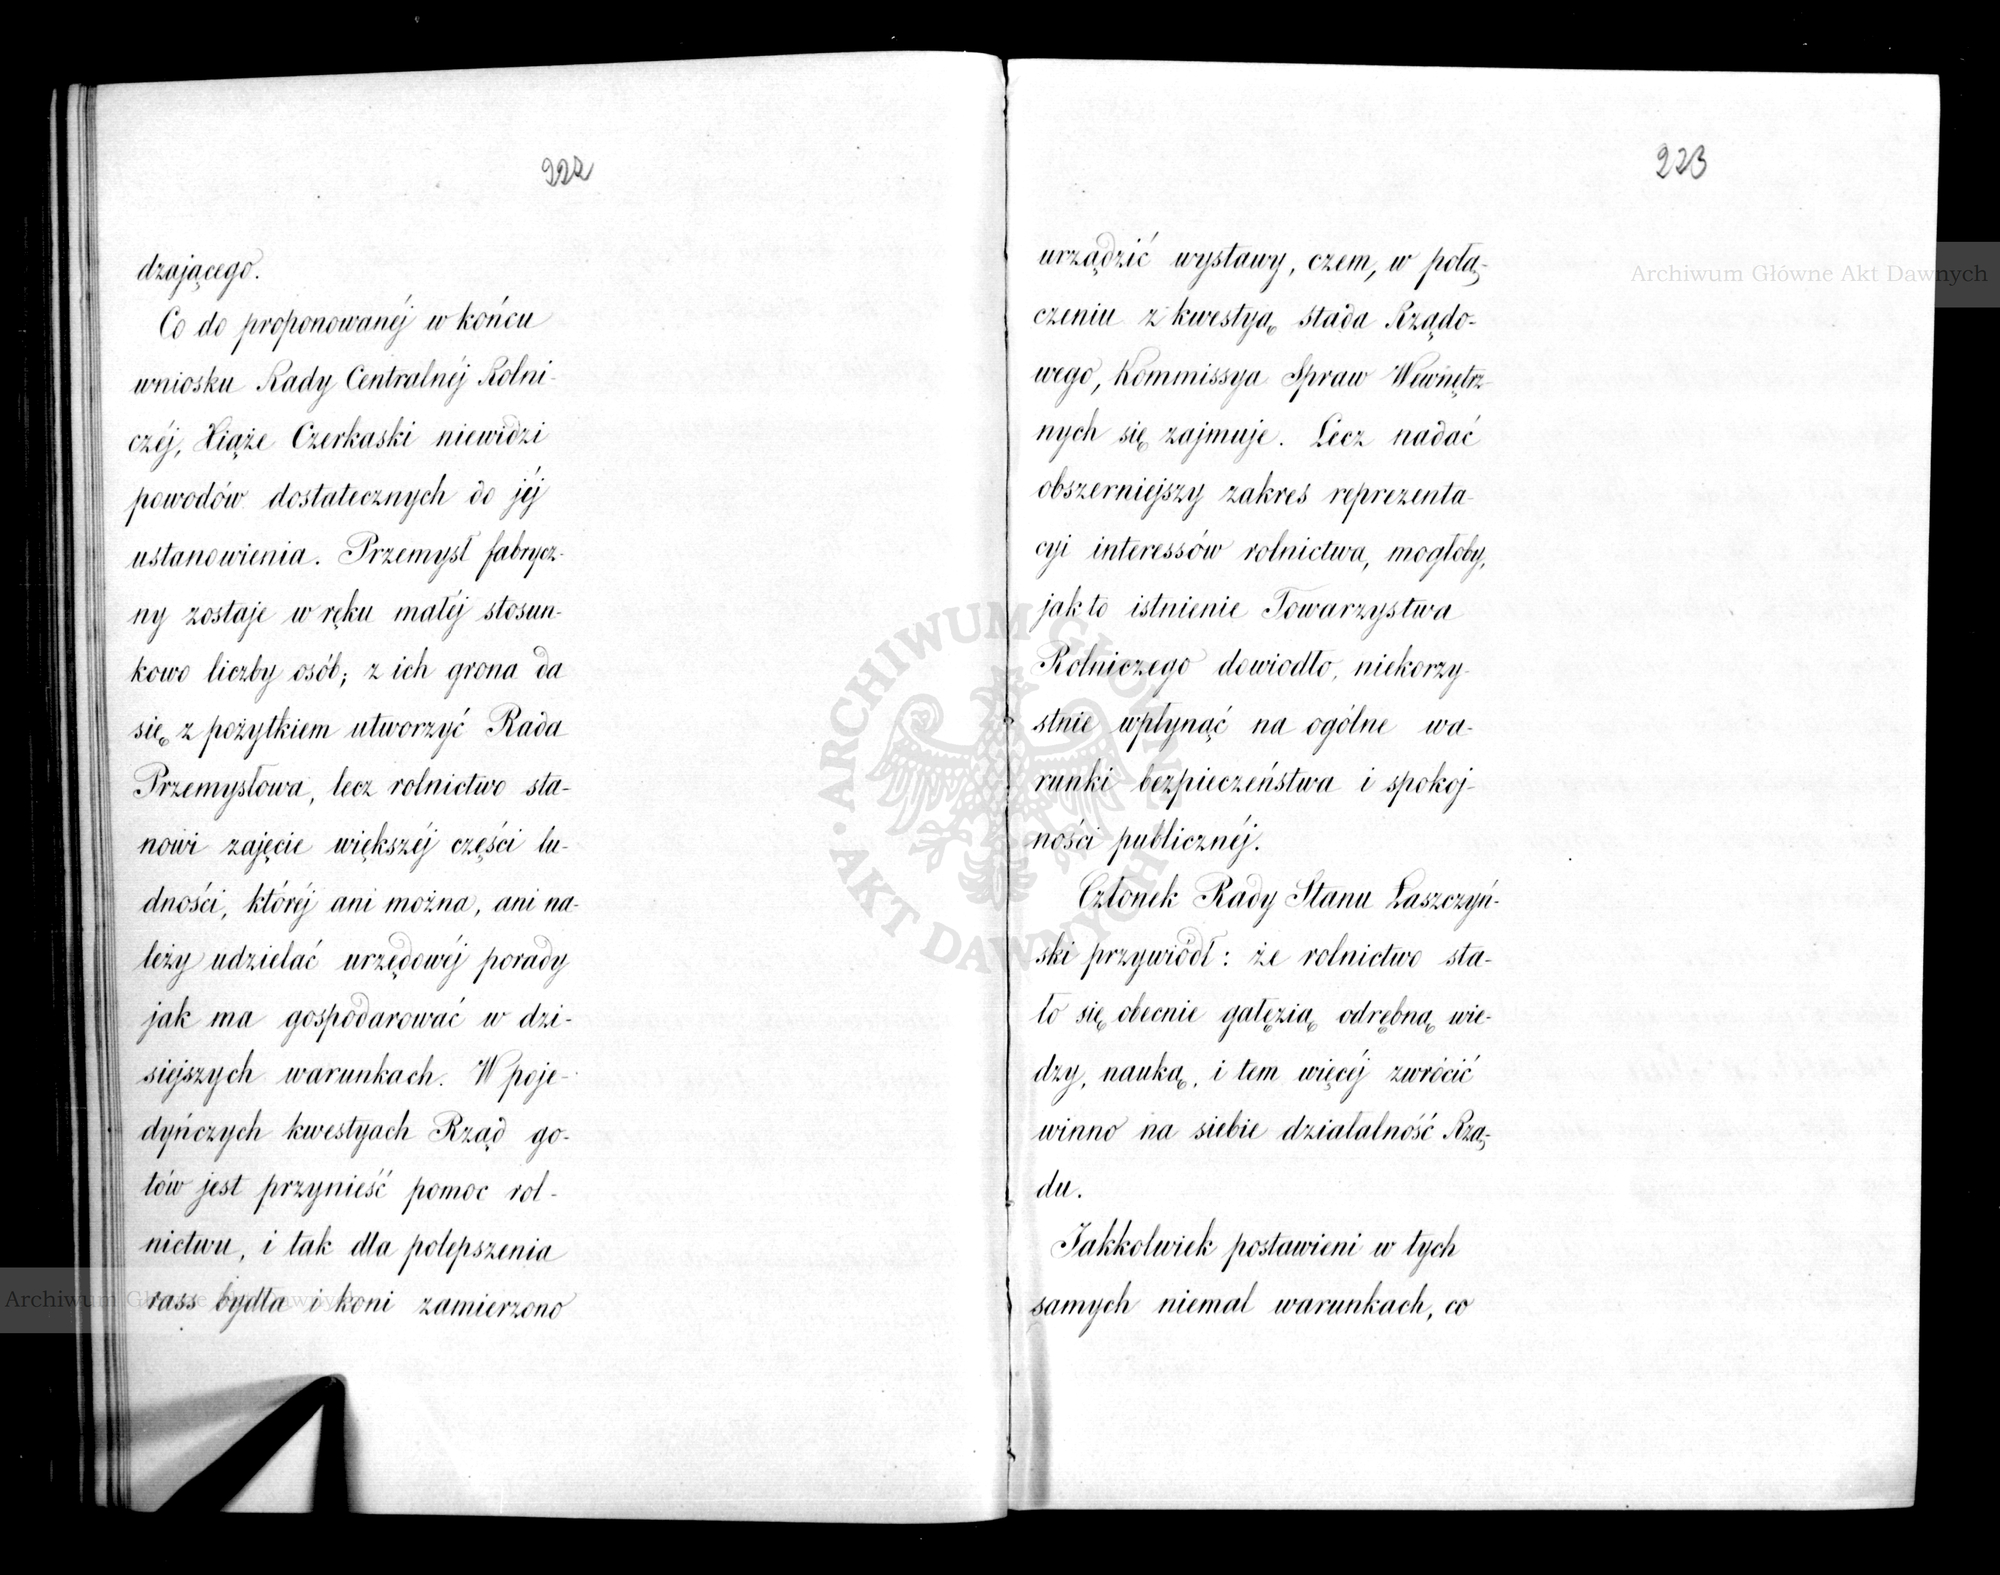 222
dzającego.
Co do proponowanéj w końcu
wniosku Rady Centralnéj Rolni-
czéj, Xiąże Czerkaski niewidzi
powodów dostatecznych do jéj
ustanowienia. Przemysł fabrycz-
ny zostaje w ręku małéj stosun-
kowo liczby osób; z ich grona da
się z pożytkiem utworzyć Rada
Przemysłowa, lecz rolnictwo sta-
nowi zajęcie większéj części lu-
dności, któréj ani można, ani na-
leży udzielać urzędowéj porady
jak ma gospodarować w dzi-
siejszych warunkach. W poje-
dyńczych kwestyach Rząd go-
tów jest przynieść pomoc rol-
nictwu, i tak dla polepszenia
rass bydła i koni zamierzono
223
urządzić wystawy, czem, w połą-
czeniu z kwestyą stada Rządo-
wego, Kommissya Spraw Wewnętrz-
nych się zajmuje. Lecz nadać
obszerniejszy zakres reprezenta-
cyi interessów rolnictwa, mogłoby,
jak to istnienie Towarzystwa
Rolniczego dowiodło, niekorzy-
stnie wpłynąć na ogólne wa-
runki bezpieczeństwa i spokoj-
ności publicznéj.
Członek Rady Stanu Łaszczyń-
ski przywiódł: że rolnictwo sta-
ło się obecnie gałęzią odrębną wie-
dzy, nauką, i tem więcéj zwrócić
winno na siebie działalność Rzą-
du.
Jakkolwiek postawieni w tych
samych niemal warunkach, co
Archiwum Główne Akt Dawnych
Archiwum Główne Akt Dawnych
ARCHIWUM GŁÓWNE • AKT DAWNYCH •